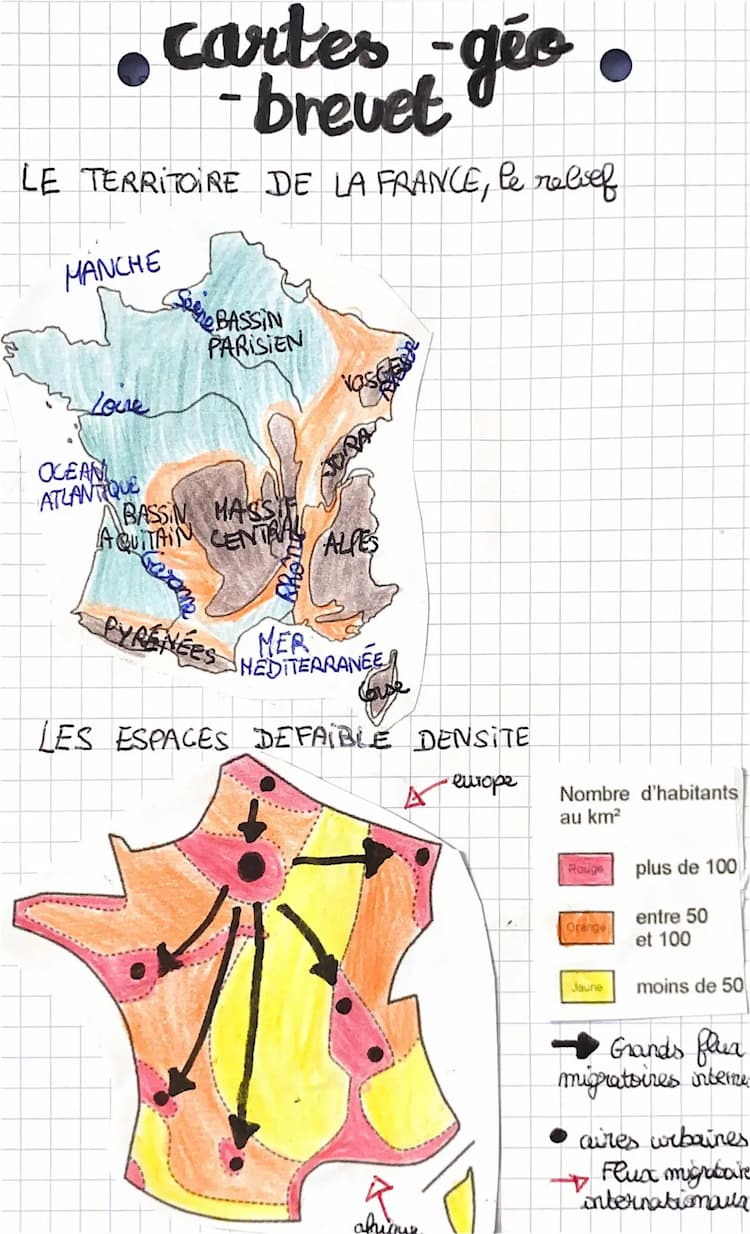 cartes - géo
- brevet
LE TERRITOIRE DE LA FRANCE, le relief
MANCHE
Seine
BASSIN
PARISIEN
VOSGES
Loire
JURA
OCEAN
ATLANTIQUE
BASSIN
AQUITAIN
MASSIF
CENTRAL
ALPES
Garonne
Rhône
PYRÉNÉES
MER
MÉDITERRANÉE
Corse
LES ESPACES DE FAIBLE DENSITE
europe
Nombre d'habitants
au km²
Rouge
plus de 100
Orange
entre 50
et 100
Jaune
moins de 50
Grands flux
migratoires interne
aires urbaines
Flux migratoire
internationaux
afrique